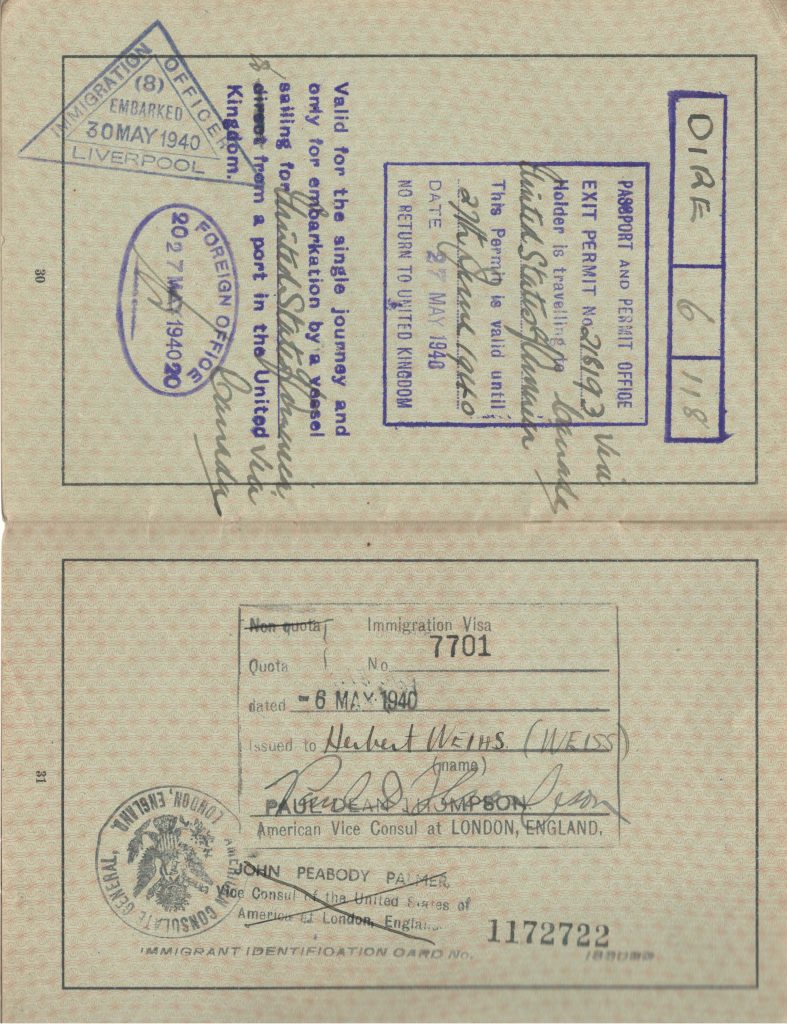 DIRE 6 118
PASSPORT AND PERMIT OFFICE
EXIT PERMIT No. 218193 via
Holder is travelling to Canada
United States of America
This Permit is valid until
27th June 1940
DATE 27 MAY 1940
NO RETURN TO UNITED KINGDOM
Valid for the single journey and
only for embarkation by a vessel
sailing for United States of America
direct from a port in the United via
Kingdom. Canada
IMMIGRATION OFFICER
(8)
EMBARKED
30 MAY 1940
LIVERPOOL
FOREIGN OFFICE
20 27 MAY 1940 20
30
Non quota Immigration Visa
Quota No. 7701
dated -6 MAY 1940
Issued to Herbert WEIHS. (WEISS)
(name)
PAUL DEAN THOMPSON
American Vice Consul at LONDON, ENGLAND.
JOHN PEABODY PALMER
Vice Consul of the United States of
America at London, England.
AMERICAN CONSULATE GENERAL,
LONDON, ENGLAND.
IMMIGRANT IDENTIFICATION CARD No. 1172722
31